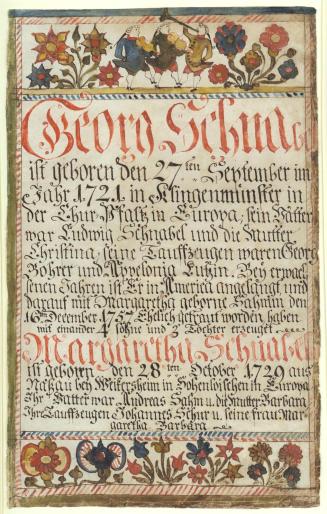 Georg Schnabel
ist geboren den 27ten September im
Jahr 1721 in Klingenmünster in
der Chur-Pfaltz in Europa, sein Vatter
war Ludwig Schnabel und die Mutter
Christina, seine Tauffzeugen waren Georg
Bohrer und Appelonia Lutzin. Bey erwac
senen Jahren ist Er in America angelangt und
darauf mit Margaretha geborne Hahnin den
16ten December 1757 Ehlich getraut worden haben
mit einander 4 Söhne und 2 Töchter erzeuget
Margaretha Schnabel
ist geboren den 28ten October 1729 aus
bey Weikersheim in Hohenlohischen in Europa
Ihr Vatter war Andreas Hahn u. die Mutter Barbara
Ihre Tauffzeugen Johannes Schur u. seine frau Mar-
garetha Barbara